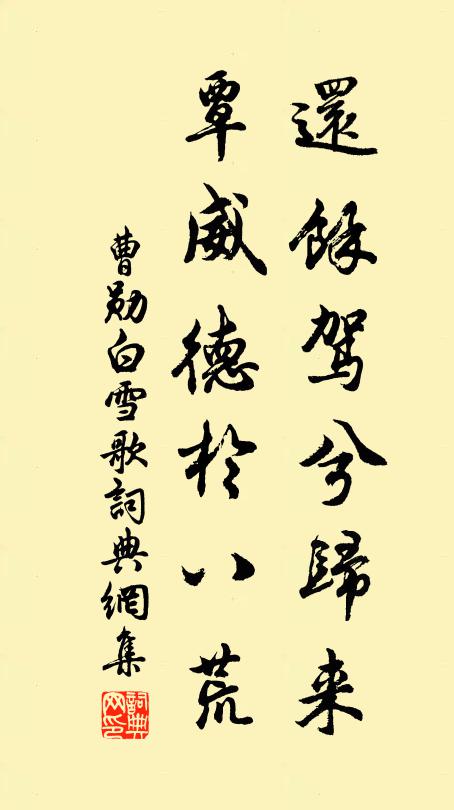 還餘駕兮歸来
覃威德於八荒
曹勛白雪歌詞典網集
詞典网印